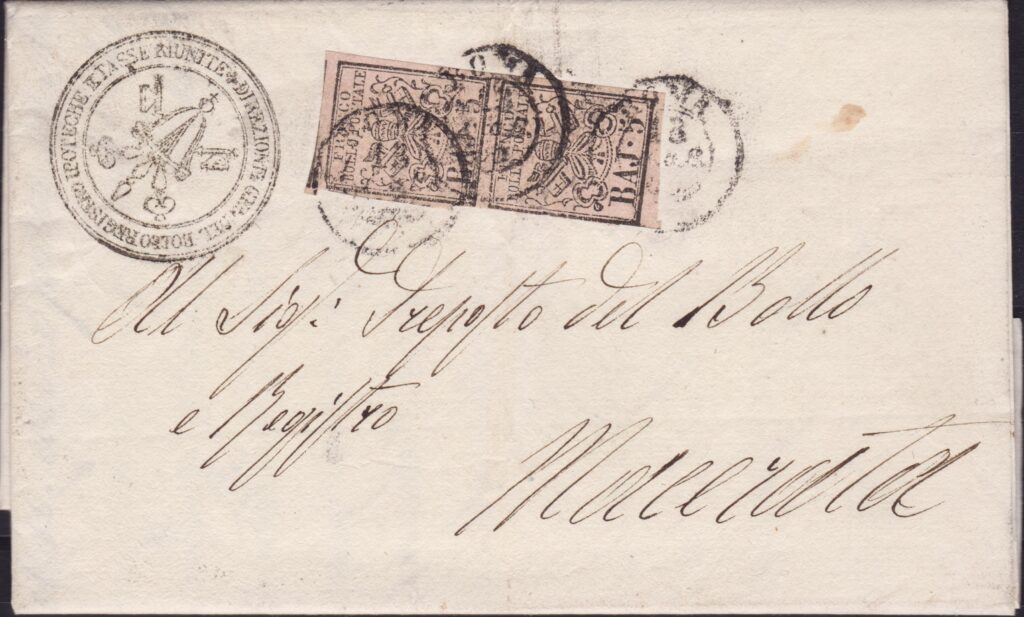 DIREZIONE GEN. DEL BOLLO REGISTRO IPOTECHE E TASSE RIUNITE
FRANCO
BOLLO POSTALE
BAJ·5
ROMA
Al Sig.r Preposto del Bollo
e Registro
Macerata